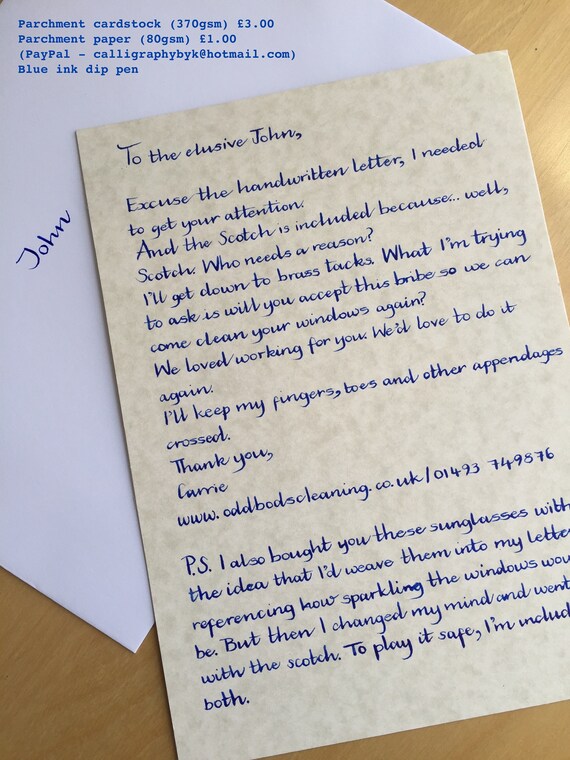 Parchment cardstock (370gsm) £3.00
Parchment paper (80gsm) £1.00
(PayPal - calligraphybyk@hotmail.com)
Blue ink dip pen
John
To the elusive John,
Excuse the handwritten letter, I needed
to get your attention.
And the Scotch is included because... well,
Scotch. Who needs a reason?
I'll get down to brass tacks. What I'm trying
to ask is will you accept this bribe so we can
come clean your windows again?
We loved working for you. We'd love to do it
again.
I'll keep my fingers, toes and other appendages
crossed.
Thank you,
Carrie
www.oddbodscleaning.co.uk/01493 749876
P.S. I also bought you these sunglasses with
the idea that I'd weave them into my lette
referencing how sparkling the windows wou
be. But then I changed my mind and went
with the scotch. To play it safe, I'm includ
both.